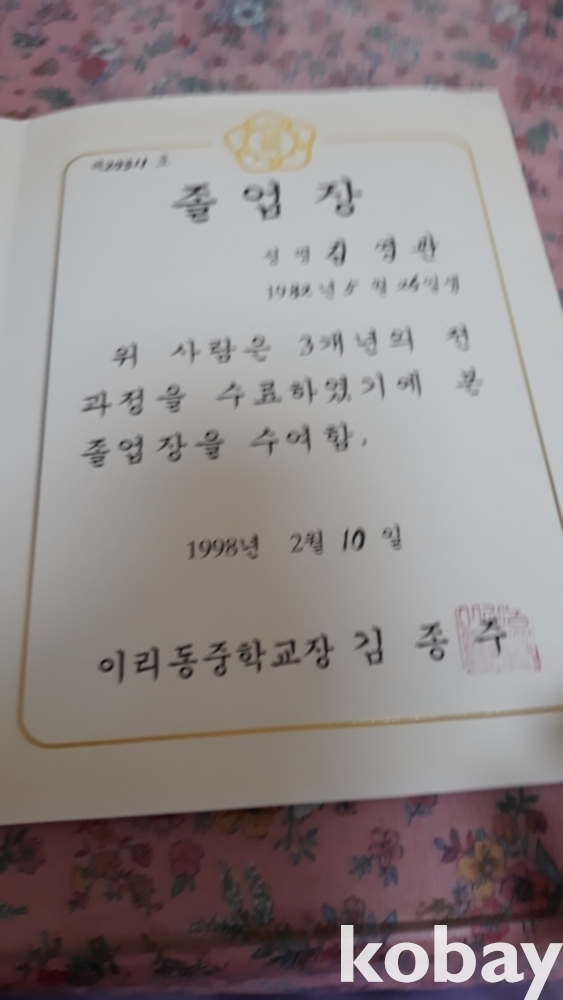 제29311 호
졸 업 장
성 명 김
1982년 5 월 26일생
위 사람은 3개년의 전
과정을 수료하였기에 본
졸업장을 수여함.
1998년 2월 10 일
이리동중학교장 김 종 수
kobay